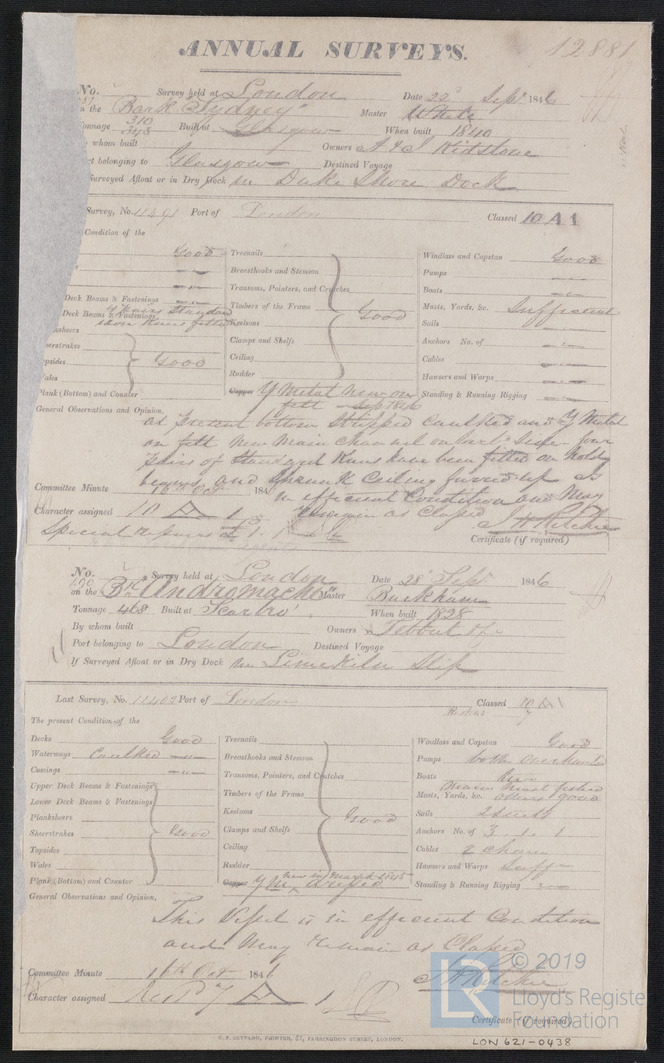 ANNUAL SURVEYS.
12881
No. Survey held at London Date 22d Sept 1846
on the Bark "Sydney" Master White
Tonnage 310 348 Built at Glasgow When built 1840
whom built Owners A & J Kidstone
belonging to Glasgow Destined Voyage
Surveyed Afloat or in Dry Dock in Duke Shore Dock
Survey, No. 11491 Port of London Classed 10 A 1
Condition of the
Good
Treenails
Windlass and Capstan Good
Breasthooks and Stemson
Pumps
Transoms, Pointers, and Crutches
Boats
Deck Beams & Fastenings
Timbers of the Frame
Good
Masts, Yards, &c. Sufficient
Deck Beams & Fastenings
Keelsons
Sails
Clamps and Shelfs
Anchors No. of
Good
Ceiling
Cables
Rudder
Hawsers and Warps
Plank (Bottom) and Counter
Copper Y Metal New on felt Sept 1846
Standing & Running Rigging
General Observations and Opinion,
at present bottom stripped caulked and Y Metal
on felt New Main Channel on four
pairs of Standard Knees have been fitted on Hold
beams and Ceiling is
Committee Minute 16th Oct 184
in efficient Condition and May
Character assigned 10 A 1
remain as Classed
J H Ritchie
Special repairs
Certificate (if required)
No. Survey held at London Date 28 Sept 1846
on the Bk Andromache Master Buckham
Tonnage 468 Built at Scarbro' When built 1828
By whom built Owners Tebbut
Port belonging to London Destined Voyage
If Surveyed Afloat or in Dry Dock in Limekiln Slip
Last Survey, No. 11402 Port of London Classed 10 A 1
Restored 7
The present Condition of the
Decks Good
Treenails
Windlass and Capstan Good
Waterways Caulked
Breasthooks and Stemson
Pumps both overhauled
Comings
Transoms, Pointers, and Crutches
Boats New
Upper Deck Beams & Fastenings
Timbers of the Frame
Masts, Yards, &c. others good
Lower Deck Beams & Fastenings
Keelsons
Good
Sails 2 suits
Planksheers
Sheerstrakes
Good
Clamps and Shelfs
Anchors No. of 3. 1. 1
Topsides
Ceiling
Cables 2 chain
Wales
Rudder
Hawsers and Warps Suff
Plank (Bottom) and Counter
Copper Y M new in March 1845
Standing & Running Rigging
General Observations and Opinion,
This Vessel is in efficient Condition
and May remain as Classed
Committee Minute 16th Oct 1846
J H Ritchie
Character assigned
Certificate (if required)
© 2019
LR
Lloyd's Register
Foundation
FARRINGDON STREET, LONDON.
LON 621-0438